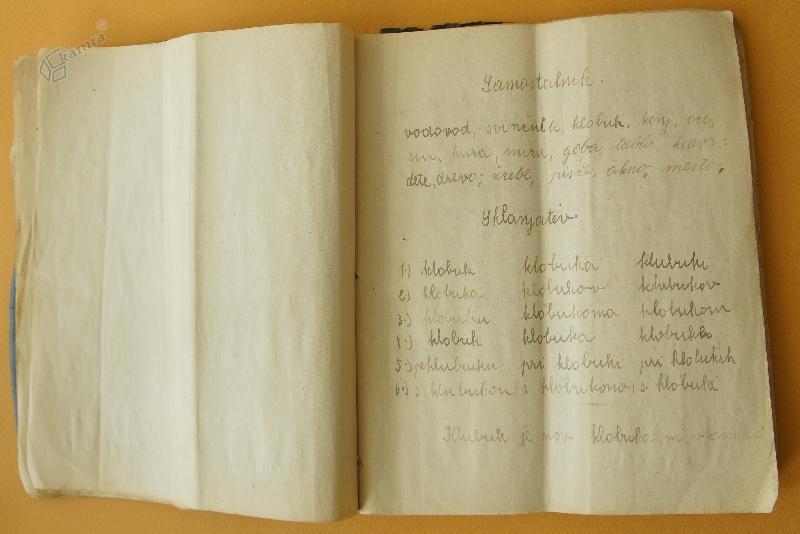 kamra
Samostalnik.
vodovod, svinčnik, klobuk, konj, oče,
sin, kura, miza, goba, tabla, krava,
dete, drevo, žrebe, pišče, okno, mesto,
Sklanjatev
1.) klobuk klobuka klubuki
2.) klobuka klobukov klubukov
3.) klobuku klobukoma klobukom
4.) klobuk klobuka klobuke
5.) klubuku pri klobuki pri klobukih
6.) s klubukom s klobukoma s klobuki
Klubuk je nov klobuka ni